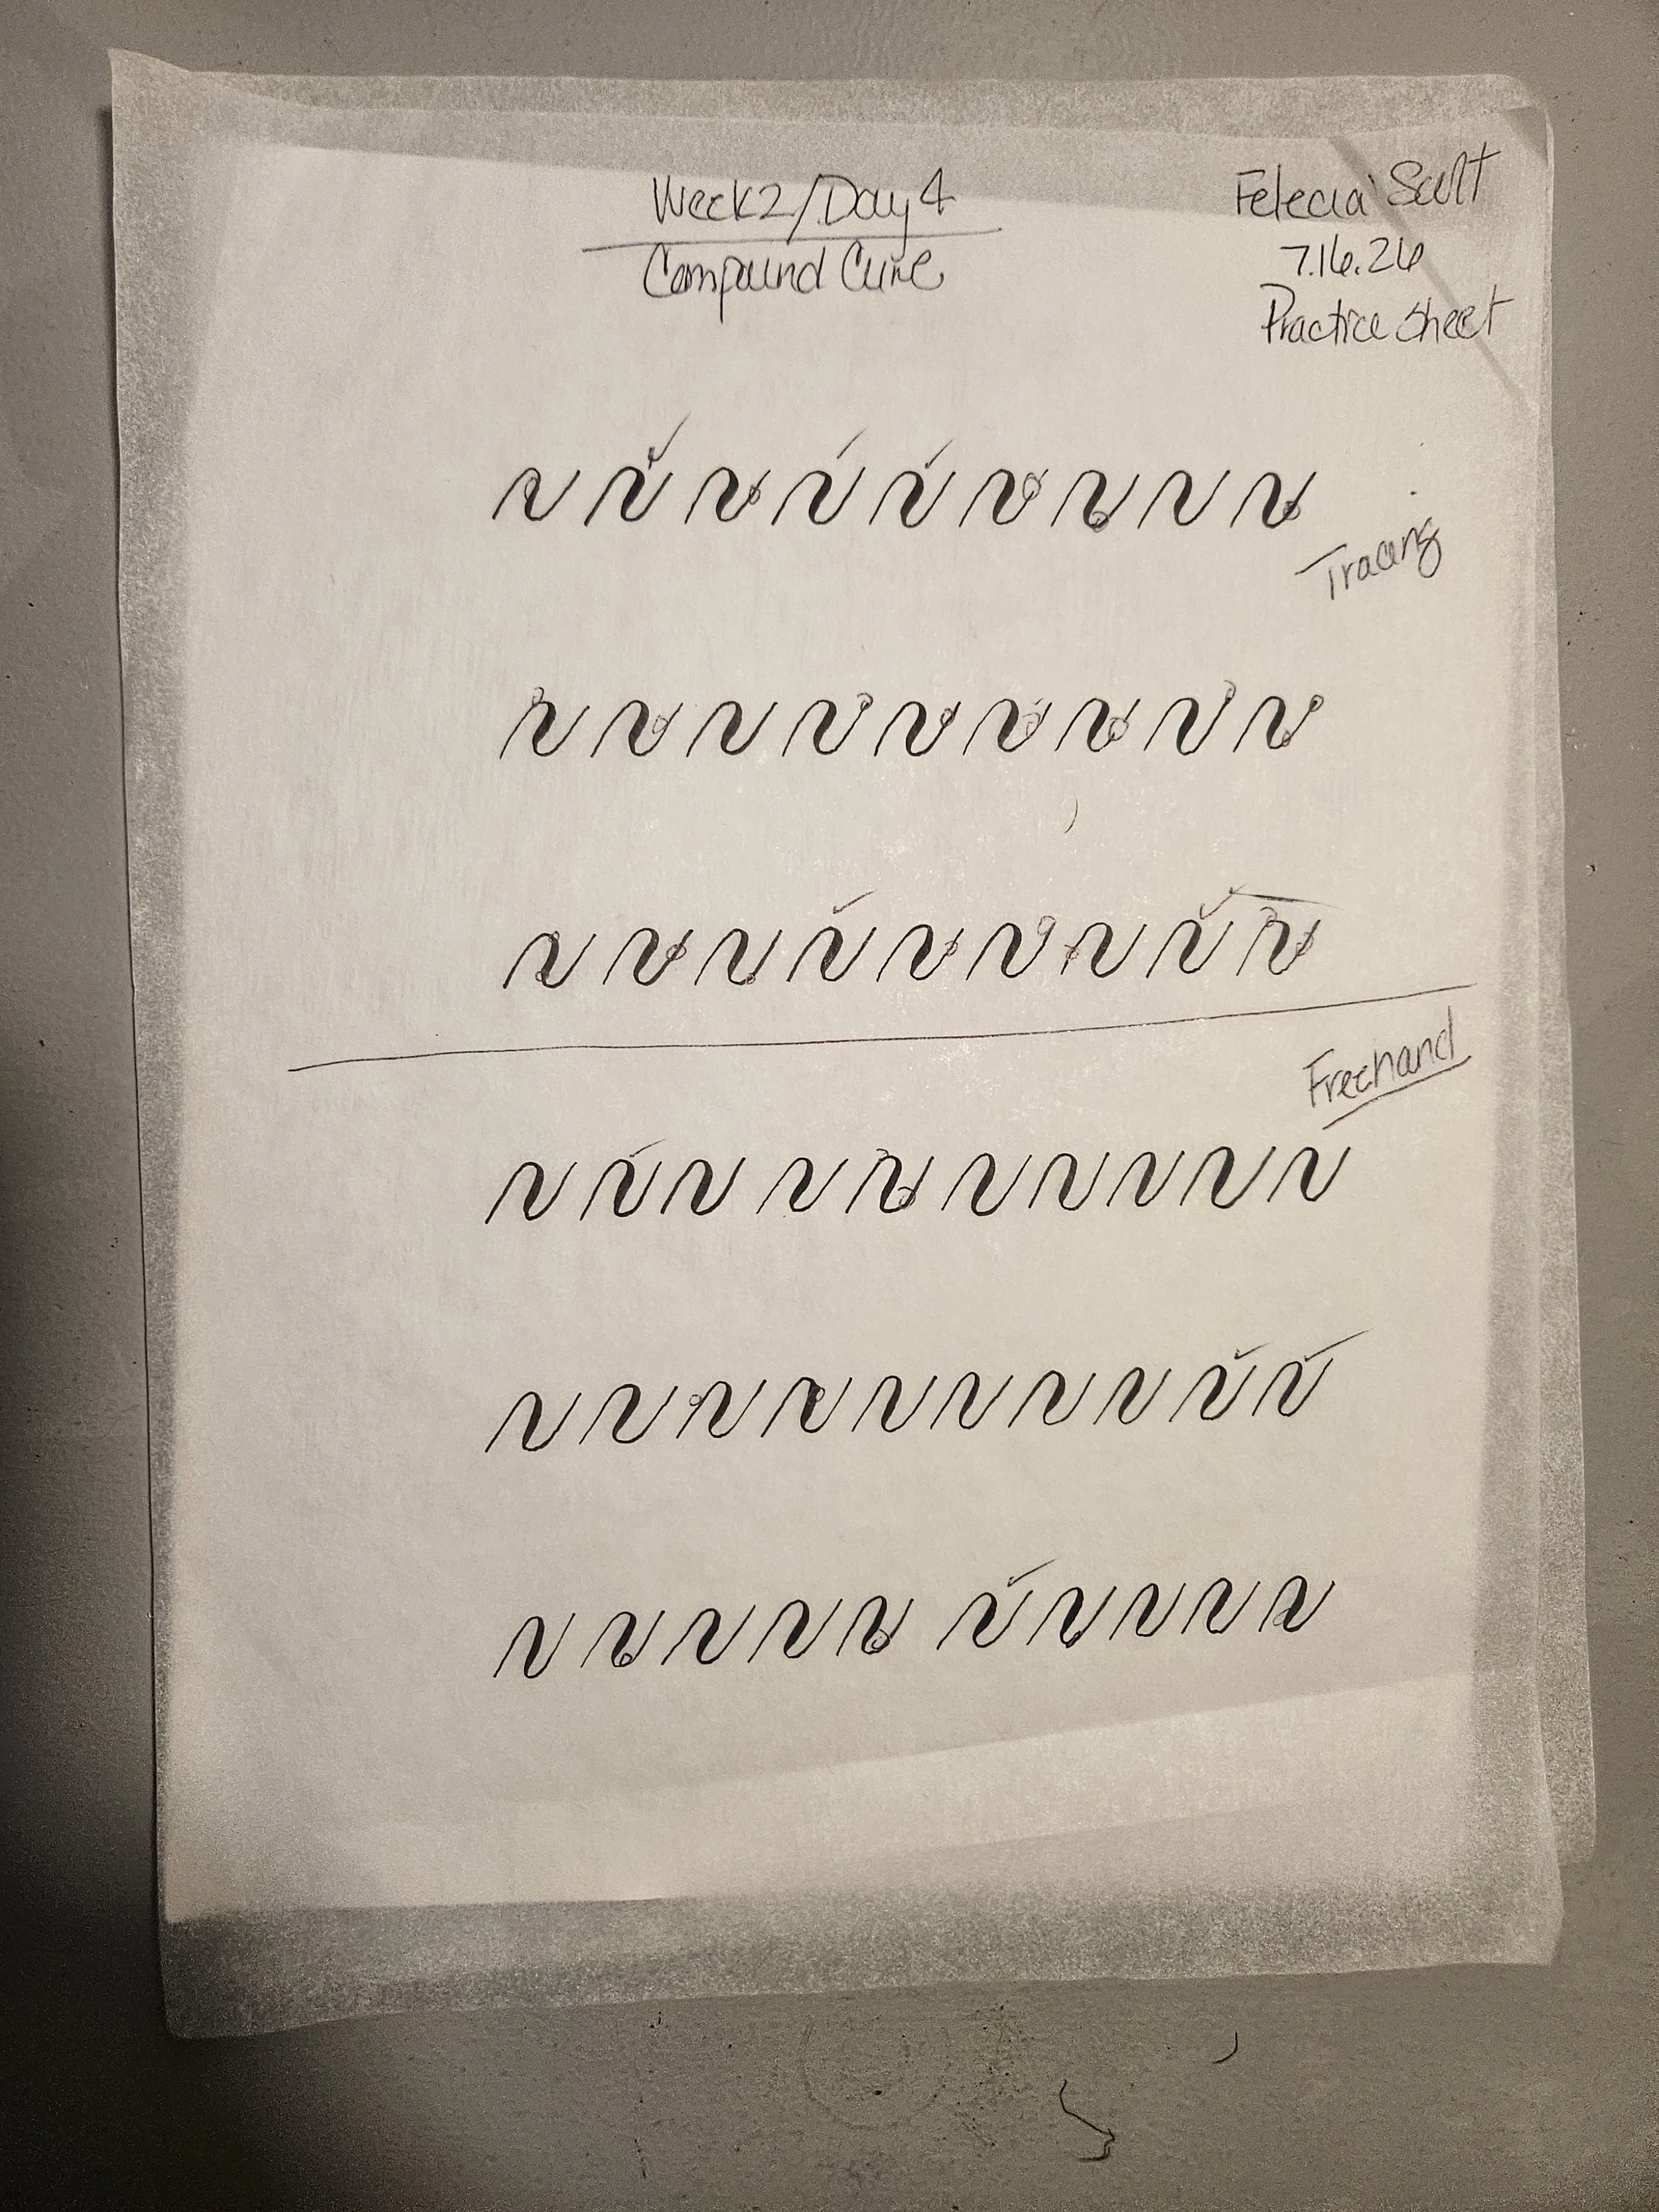 Week 2/Day 4
Compound Curve
Felecia Scott
7.16.26
Practice Sheet
Tracing
Freehand